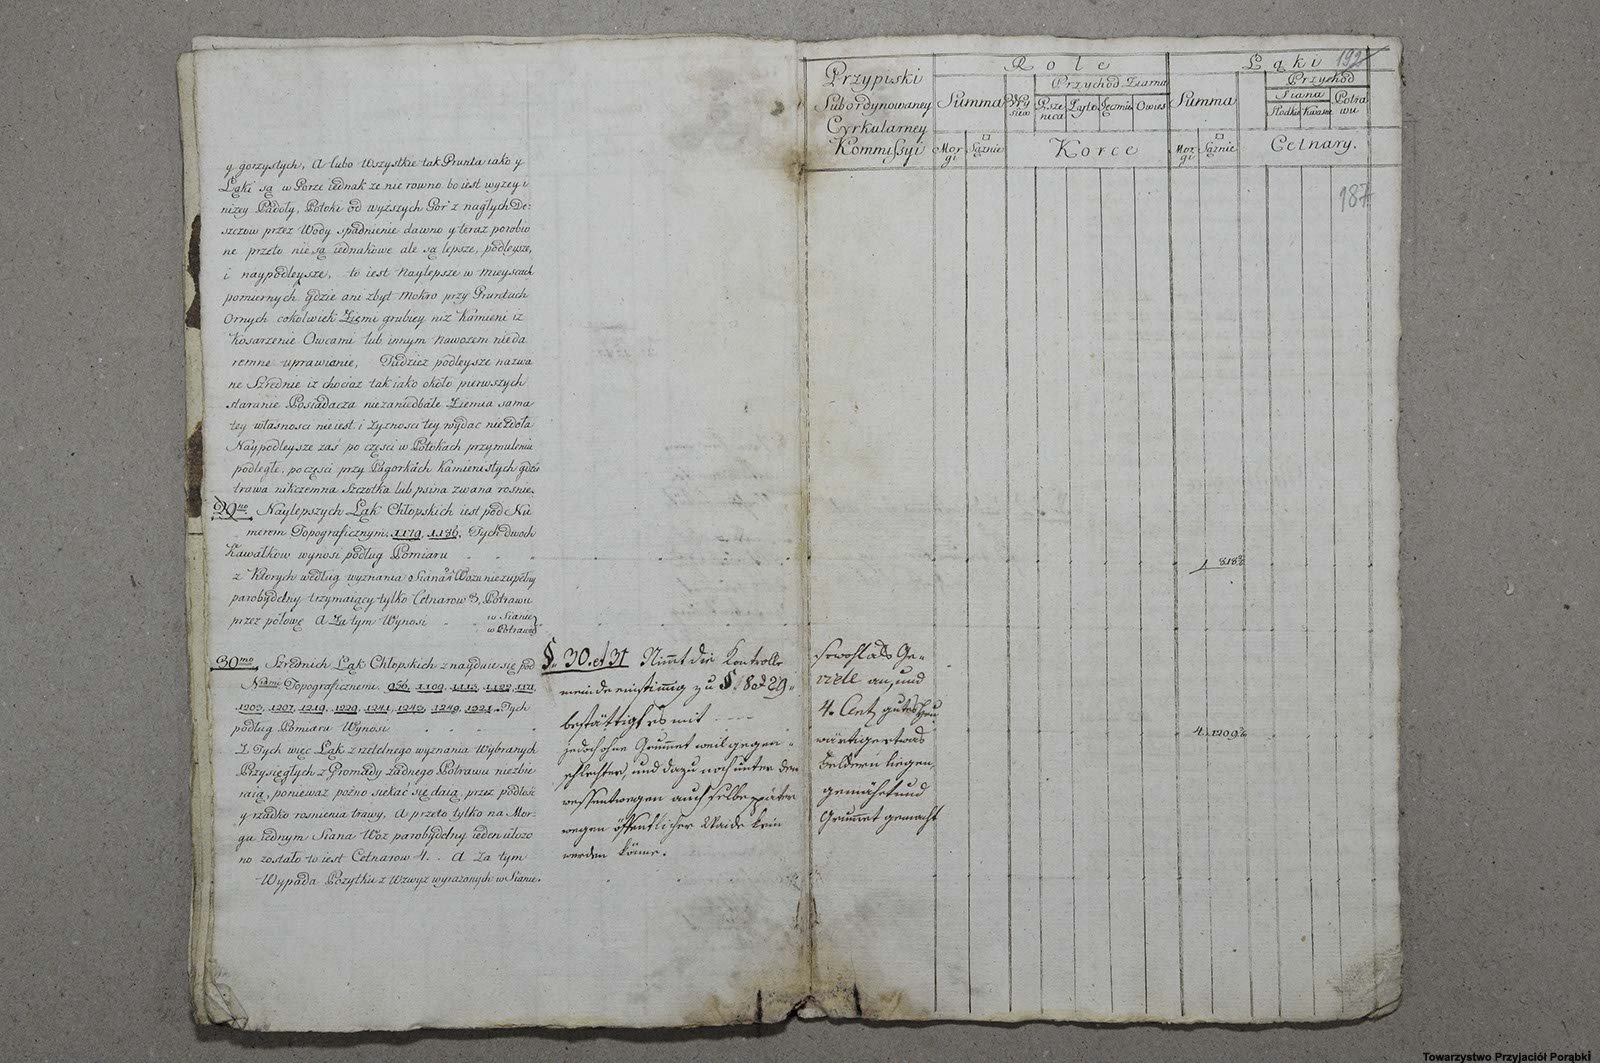 y gorzystych, A lubo Wszystkie tak Grunta iako y
Łąki są w Gorze iednak ze nie rowno bo iest wyzey i
nizey Padoły, Potoki od wyższych Gor z nagłych De:
szczow przez Wody spadnienie dawno y teraz porobio
ne przeto nie są iednakowe ale są lepsze, podleysze,
i naypodleysze, to iest Naylepsze w mieyscach
pomiernych gdzie ani zbyt mokro przy Gruntach
Ornych cokolwiek Ziemi grubiey niz Kamieni iz
Kosarzenie Owcami lub innym nawozem nieda
remne uprawianie, Tudziez podleysze nazwa
ne Srzednie iz chociaz tak iako około pierwszych
staranie Posiadacza niezaniedbałe Ziemia sama
tey własnosci nie iest i zyznosci tey wydac niezdoła
Naypodleysze zaś po części w Potokach przymuleniu
podległe, po części przy Pagorkach Kamienistych gdzie
trawa nikczemna Szczotka lub psina zwana rosnie.
29no Naylepszych Łąk Chłopskich iest pod Nu
merem Topograficznym 1179, 1186, Tych dwoch
Kawałkow wynosi podług Pomiaru
z Ktorych według wyznania Siana Wozu niezupełny
parobydelny trzymaiący tylko Cetnarow 3, Potrawu
przez połowę A Za tym Wynosi
w Sianie
w Potrawie
30mo Szrednich Łąk Chłopskich znayduie się pod
Nrami Topograficznemi 956, 1109, 1113, 1122, 1171,
1203, 1207, 1219, 1229, 1241, 1243, 1249, 1321. Tych
podług Pomiaru Wynosi
Z Tych więc Łąk z rzetelnego wyznania Wybranych
Przysięgłych z Gromady żadnego Potrawu niezbie
raią, ponieważ pożno siekać się daią, przez podłość
y rzadko rosnienia trawy, A przeto tylko na Mor:
gu iednym Siana Woz parobydelny ieden ułozo
no zostało to iest Cetnarow 4. A Za tym
Wypada Pozytku z Wzwyz wyrazonych w Sianie.
§. 30. et 31 Nimt die Kontrolle
meinde einstimig zu § 8 et 29.
bestättigt es mit
jedoch ohne Grumet weil gegen
schlechter, und dazu noch unter den
wessentwegen auch selbe später
wegen öffentlicher Waide kein
werden könne.
Przypiski
Subordynowaney
Cyrkularney
Kommissyi
Role
Summa
Wy
siew
Przychod Ziarna
Psze
nica
Zyto
Jęczmie
Owies
Mor
gi
Sąznie
Korce
Łąki
192
Summa
Przychod
Siana
Słodkie
Kwasne
Potra
wu
Mor
gi
Sąznie
Cetnary.
187
sowohl als Ge-
viele an, und
4. Cent, gutes Heu
wärtiger etwas
Feldern liegen,
gemähet und
Grumet gemacht
1
818
4
1209
Towarzystwo Przyjaciół Porąbki